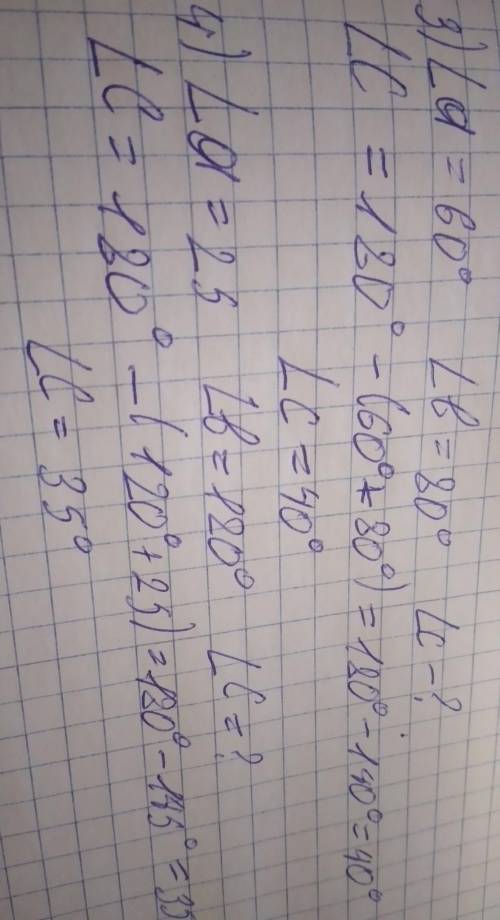 3) ∠a = 60° ∠b = 80° ∠c - ?
∠C = 180° - (60° + 80°) = 180° - 140° = 40°
∠C = 40°
4) ∠a = 25 ∠b = 120° ∠C = ?
∠C = 180° - (120° + 25) = 180° - 145° = 35
∠C = 35°